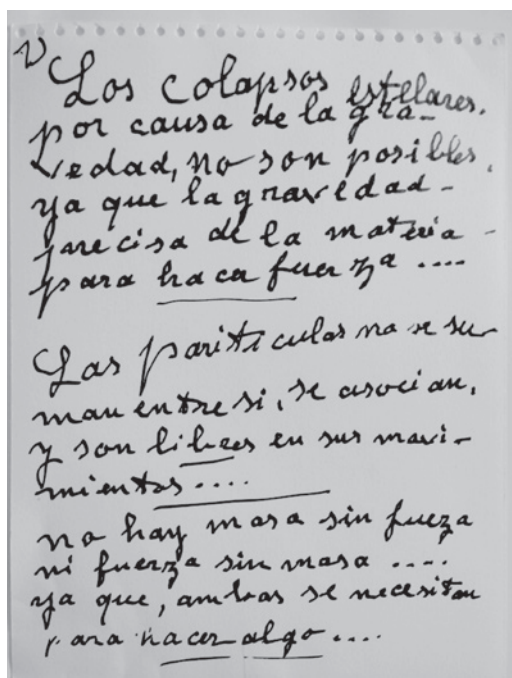 V
Los colapsos estelares.
por causa de la gra-
vedad, no son posibles,
ya que la gravedad -
precisa de la materia -
para haca fuerza ....
Las pariticulas no se su-
man entre si, se asocian,
y son libres en sus movi-
mientos ....
no hay masa sin fuerza
ni fuerza sin masa ....
ya que, ambas se necesitan
para hacer algo ....